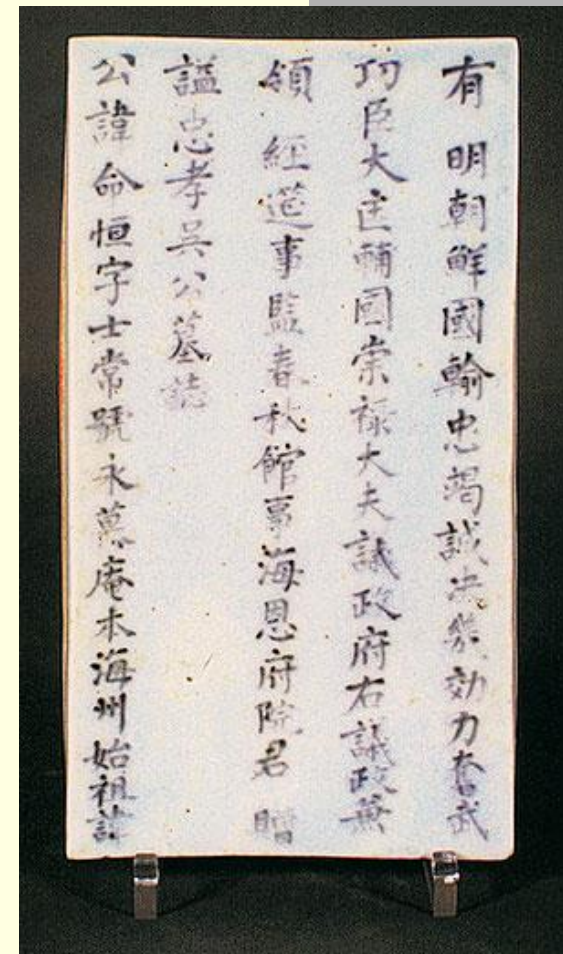 有 明朝鮮國輸忠竭誠决幾効力奮武
功臣大匡輔國崇祿大夫議政府右議政兼
領 經筵事監春秋館事海恩府院君 贈
謚忠孝吳公墓誌
公諱命恒字士常號永慕庵本海州始祖諱